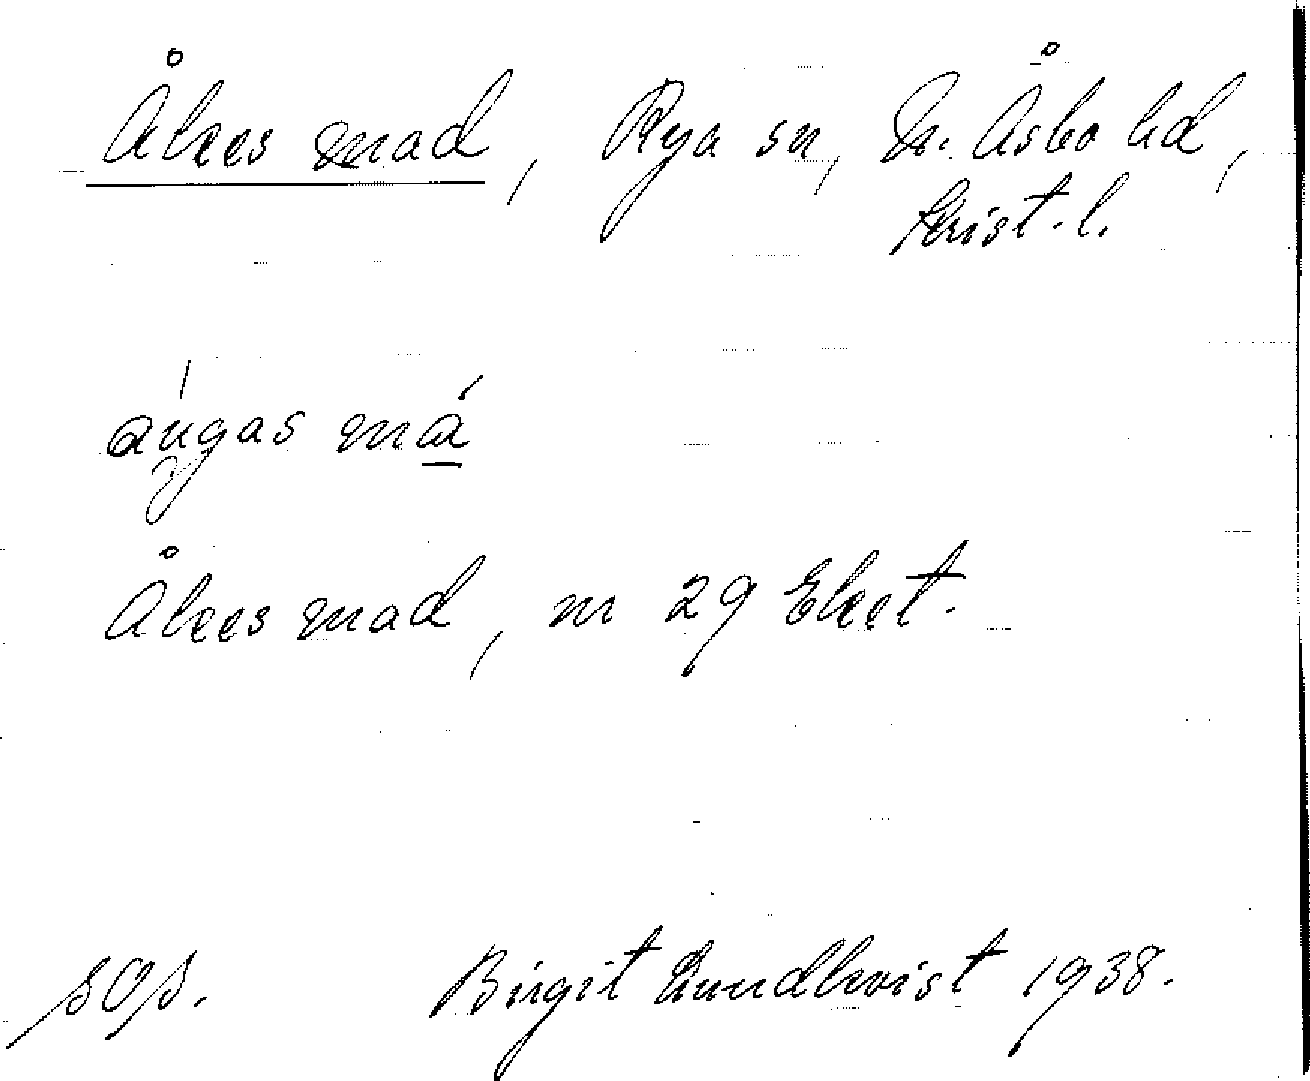 Åkes mad, Rya sn, N. Åsbo hd,
Krist. l.
åugas má
Åkes mad, nr 29 Eket.
sOs. Birgit Lundkvist 1938.